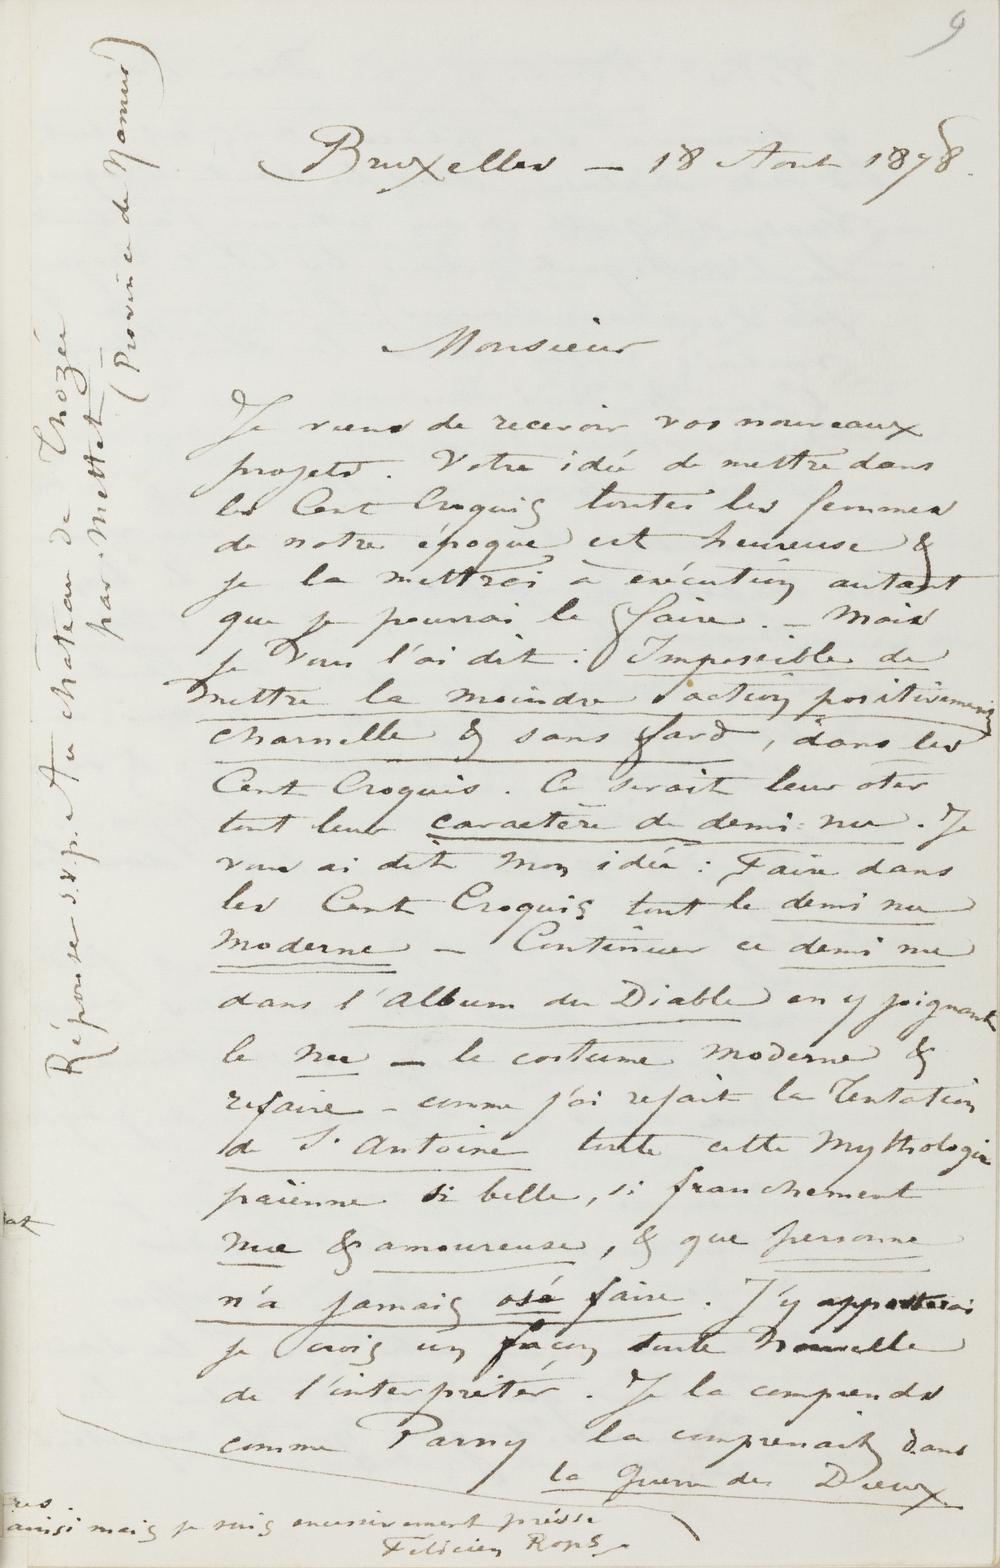 9
Bruxelles — 18 Aout 1878.
Monsieur
Je viens de recevoir vos nouveaux
projets. Votre idée de mettre dans
les Cent Croquis toutes les femmes
de notre époque est heureuse &
je la mettrai à exécution autant
que je pourrai le faire. — Mais
je vous l'ai dit : Impossible de
mettre la moindre action positivement
charnelle & sans fard, dans les
Cent Croquis. Ce serait leur oter
tout leur caractère de demi-nu. Je
vous ai dit mon idée : Faire dans
les Cent Croquis tout le demi nu
moderne — Continuer ce demi nu
dans l'album du Diable en y joignant
le nu — le costume moderne &
refaire — comme j'ai refait la Tentation
de St Antoine toute cette Mythologie
païenne si belle, si franchement
nue & amoureuse, & que personne
n'a jamais osé faire. J'y apporterai
je crois un façon toute nouvelle
de l'interpréter. Je la comprends
comme Parny la comprenait dans
la Guerre des Dieux
ainsi mais je suis excessivement préssé
Félicien Rops
Réponse s.v.p. Au château de Thozée
par Mettet —
(Province de Namur)